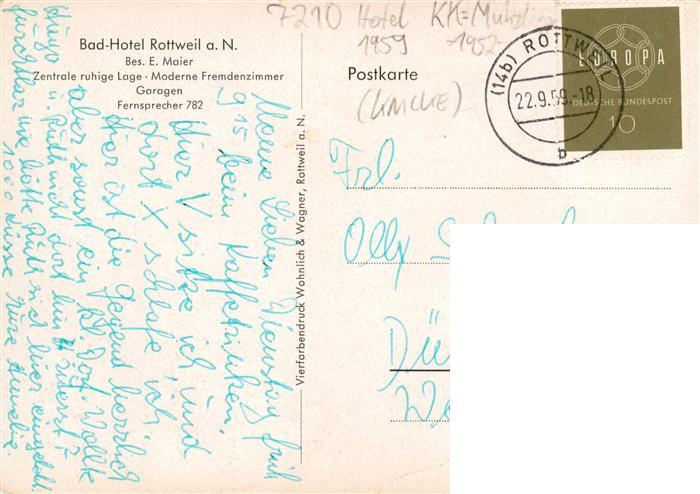 7210 Hotel KK=
1959 -1952-
Bad-Hotel Rottweil a. N.
Bes. E. Maier
Zentrale ruhige Lage · Moderne Fremdenzimmer
Garagen
Fernsprecher 782
Postkarte
(14b) ROTTWEIL
22.9.59.-18
b
EUROPA
DEUTSCHE BUNDESPOST
10
Vierfarbendruck Wohnlich & Wagner, Rottweil a. N.
Meine Lieben, Dienstag früh
9 15 beim Kaffetrinken.
Hier V sitze ich und
dort X schlafe ich
Hier ist die Gegend herrlich
aber sonst ein Kl. Dorf. Wollte
Hugo u. Ruth nicht dort hin zuerst?
furchtbar wie hätte Ruth sich hier
1000 Küsse Eure
Frl.
Olly
Dü